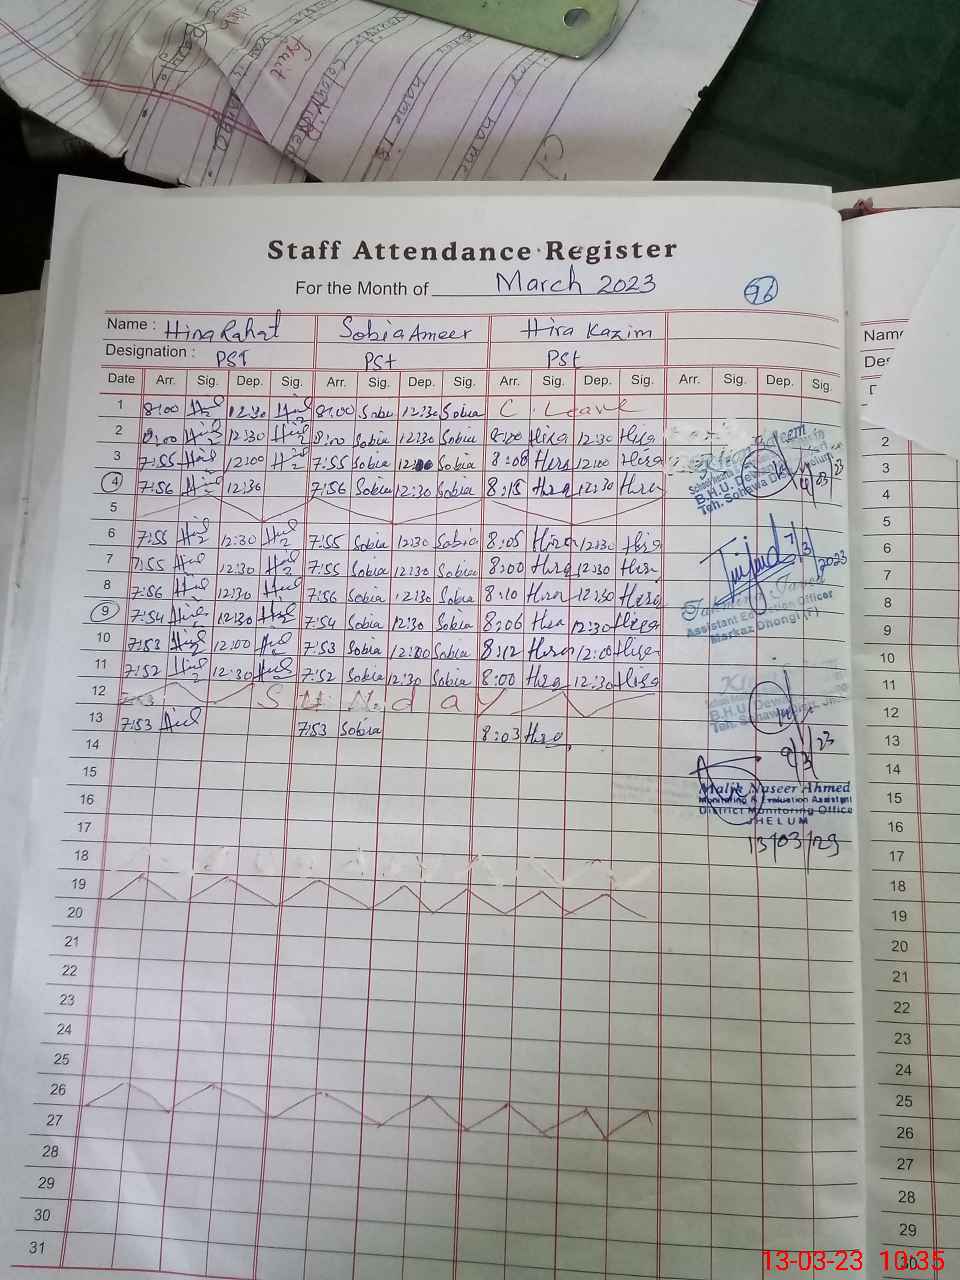 Staff Attendance Register
For the Month of March 2023
96
Name : Hina Rahat Sobia Ameer Hira Kazim
Designation : PST PST PST
Date Arr. Sig. Dep. Sig. Arr. Sig. Dep. Sig. Arr. Sig. Dep. Sig. Arr. Sig. Dep. Sig.
1 8:00 12:30 8:00 Sobia 12:30 Sobia C. Leave
2 8:00 12:30 8:00 Sobia 12:30 Sobia 8:00 Hira 12:30 Hira
3 7:55 12:00 7:55 Sobia 12:00 Sobia 8:08 Hira 12:00 Hira
4 7:56 12:30 7:56 Sobia 12:30 Sobia 8:15 Hira 12:30 Hira
5
6 7:55 12:30 7:55 Sobia 12:30 Sobia 8:05 Hira 12:30 Hira
7 7:55 12:30 7:55 Sobia 12:30 Sobia 8:00 Hira 12:30 Hira
8 7:56 12:30 7:56 Sobia 12:30 Sobia 8:10 Hira 12:30 Hira
9 7:54 12:30 7:54 Sobia 12:30 Sobia 8:06 Hira 12:30 Hira
10 7:53 12:00 7:53 Sobia 12:00 Sobia 8:12 Hira 12:00 Hira
11 7:52 12:30 7:52 Sobia 12:30 Sobia 8:00 Hira 12:30 Hira
12 SUNday
13 7:53 7:53 Sobia 8:03 Hira
14
15
16
17
18
19
20
21
22
23
24
25
26
27
28
29
30
31
B.H.U. Dewan
Teh. Sohawa
7/3/2023
Assistant Education Officer
Markaz Dhongi (F)
B.H.U. Dewan
Teh. Sohawa
9/3/23
Malik Naseer Ahmed
Monitoring & Evaluation Assistant
District Monitoring Office
JHELUM
13/03/23
Name
2
3
4
5
6
7
8
9
10
11
12
13
14
15
16
17
18
19
20
21
22
23
24
25
26
27
28
29
30
13-03-23 10:35